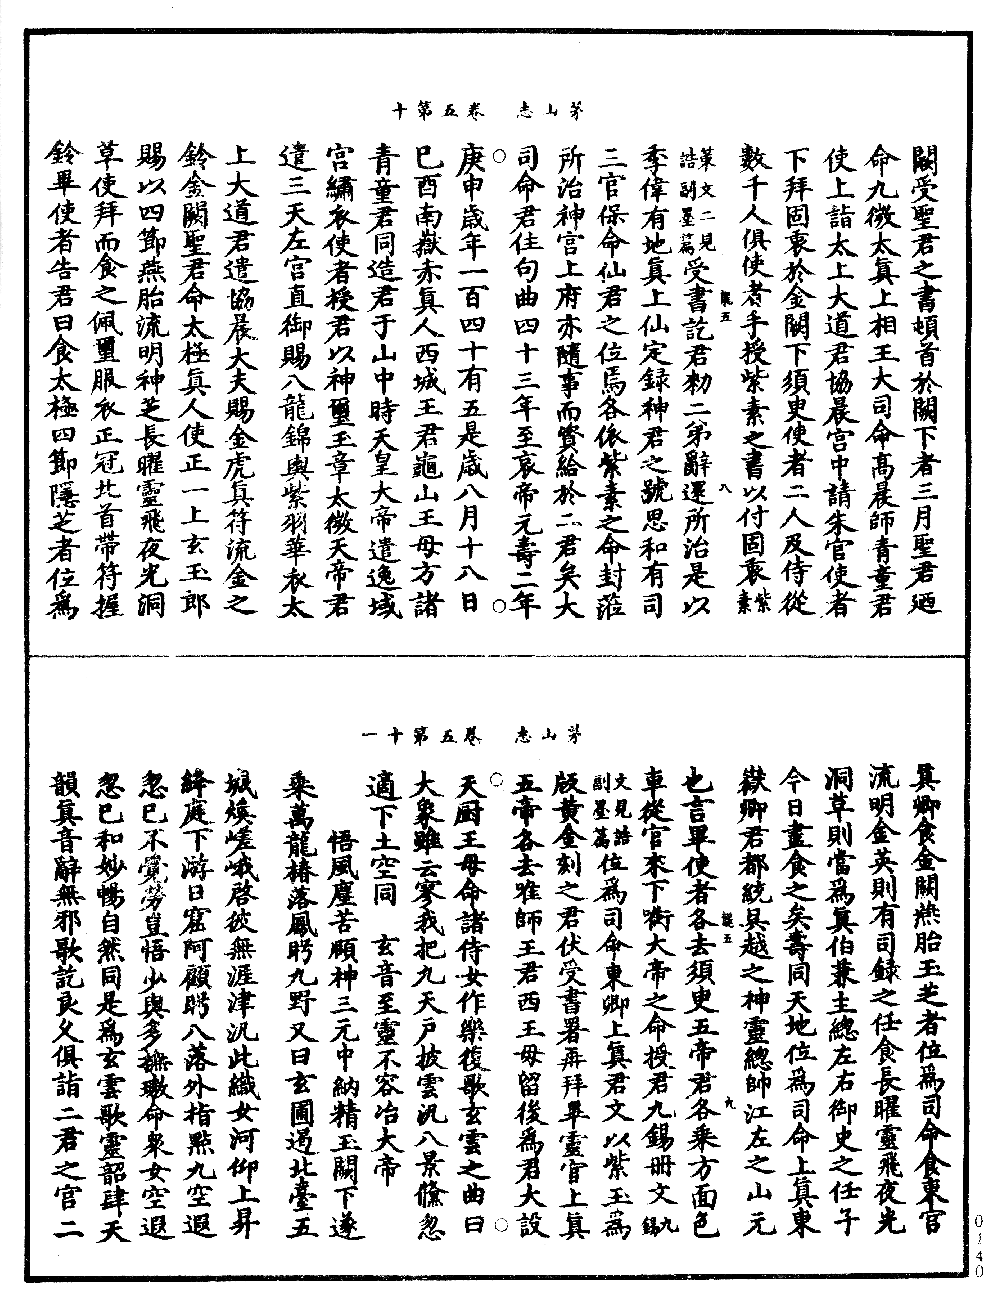 茅山志　卷五第十
闕受聖君之書頓首於闕下者三月聖君廼
命九微太真上相王大司命高晨師青童君
使上詣太上大道君協晨宮中請朱官使者
下拜固衷於金闕下須臾使者二人及侍從
數千人俱使者手授紫素之書以付固衷紫素
策文二見誥副墨篇受書訖君勑二弟辭還所治是以
季偉有地真上仙定録神君之號思和有司
三官保命仙君之位焉各依紫素之命封蒞
所治神宮上府亦隨事而資給於二君矣大
司命君住句曲四十三年至哀帝元壽二年
庚申歲年一百四十有五是歲八月十八日
巳酉南嶽赤真人西城王君龜山王母方諸
青童君同造君于山中時天皇大帝遣逸域
宮繡衣使者授君以神璽玉章太微天帝君
遣三天左宮直御賜八龍錦輿紫羽華衣太
上大道君遣協晨大夫賜金虎真符流金之
鈴金闕聖君命太極真人使正一上玄玉郎
賜以四節燕胎流明神芝長曜靈飛夜光洞
草使拜而食之佩璽服衣正冠北首帶符握
鈴畢使者告君曰食太極四節隱芝者位爲
茅山志　卷五第十一
真卿食金闕燕胎玉芝者位爲司命食東宮
流明金英則有司録之任食長曜靈飛夜光
洞草則當爲真伯兼主總左右御史之任子
今日盡食之矣壽同天地位爲司命上真東
嶽卿君都統吳越之神靈總帥江左之山元
也言畢使者各去須臾五帝君各乘方面色
車從官來下衛大帝之命授君九錫册文九錫
文見誥副墨篇位爲司命東卿上真君文以紫玉爲
版黄金刻之君伏受書署再拜畢靈官上真
五帝各去唯師王君西王母留後爲君大設
天厨王母命諸侍女作樂復歌玄雲之曲曰
大象雖云寥我把九天戸披雲汎八景儵忽
適下土空同　玄音至靈不容冶大帝
悟風塵苦願神三元中納精玉闕下遂
乘萬龍椿落鳳眄九野又曰玄圃遏北臺五
城煥嵯峨啓彼無涯津汎此織女河仰上昇
絳庭下游日窟阿顧眄八落外指點九空遐
忽巳不覺勞豈悟少與多撫璈命衆女空遐
忽巳和妙暢自然同是爲玄雲歌靈韶肆天
韻真音辭無邪歌訖良久俱詣二君之宮二